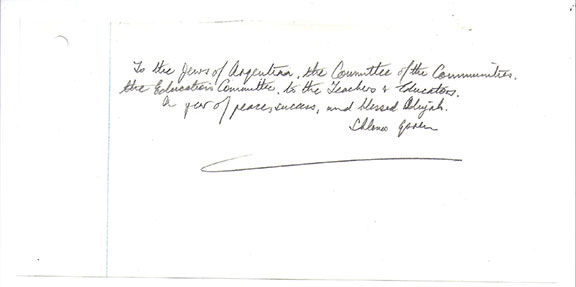 To the Jews of Argentina, the Committee of the Communities,
the Education Committee, to the Teachers & Educators,
A year of peace, success, and blessed Aliyah.
Shlomo